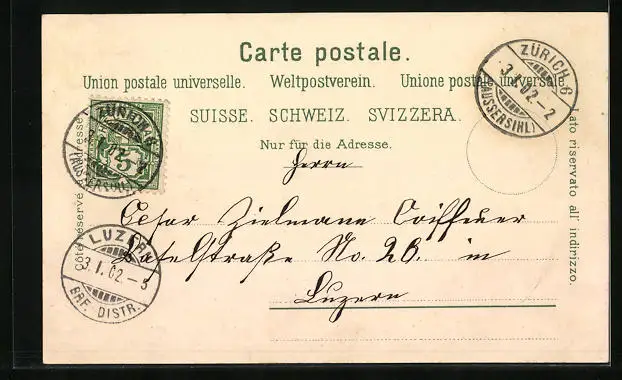 Carte postale.
Union postale universelle. Weltpostverein. Unione postale universale.
SUISSE. SCHWEIZ. SVIZZERA.
Nur für die Adresse.
Herrn
Cesar Zielmann Coiffeur
Straße No. 20. in
Luzern
Côté réservé à l'adresse
Lato riservato all' indirizzo.
ZÜRICH 6
3.I.02-2
(AUSSERSIHL)
ZÜRICH 6
3.I.02
(AUSSERSIHL)
5
LUZERN
3.I.02-5
BRF. DISTR.